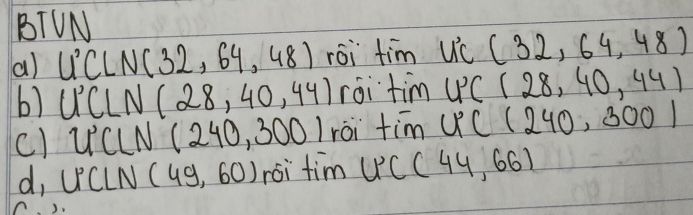 BTVN
a) ƯCLN(32, 64, 48) rồi tìm ƯC (32, 64, 48)
b) ƯCLN (28, 40, 44) rồi tìm ƯC (28, 40, 44)
c) ƯCLN (240, 300) rồi tìm ƯC (240, 300)
d, ƯCLN (49, 60) rồi tìm ƯC (44, 66)